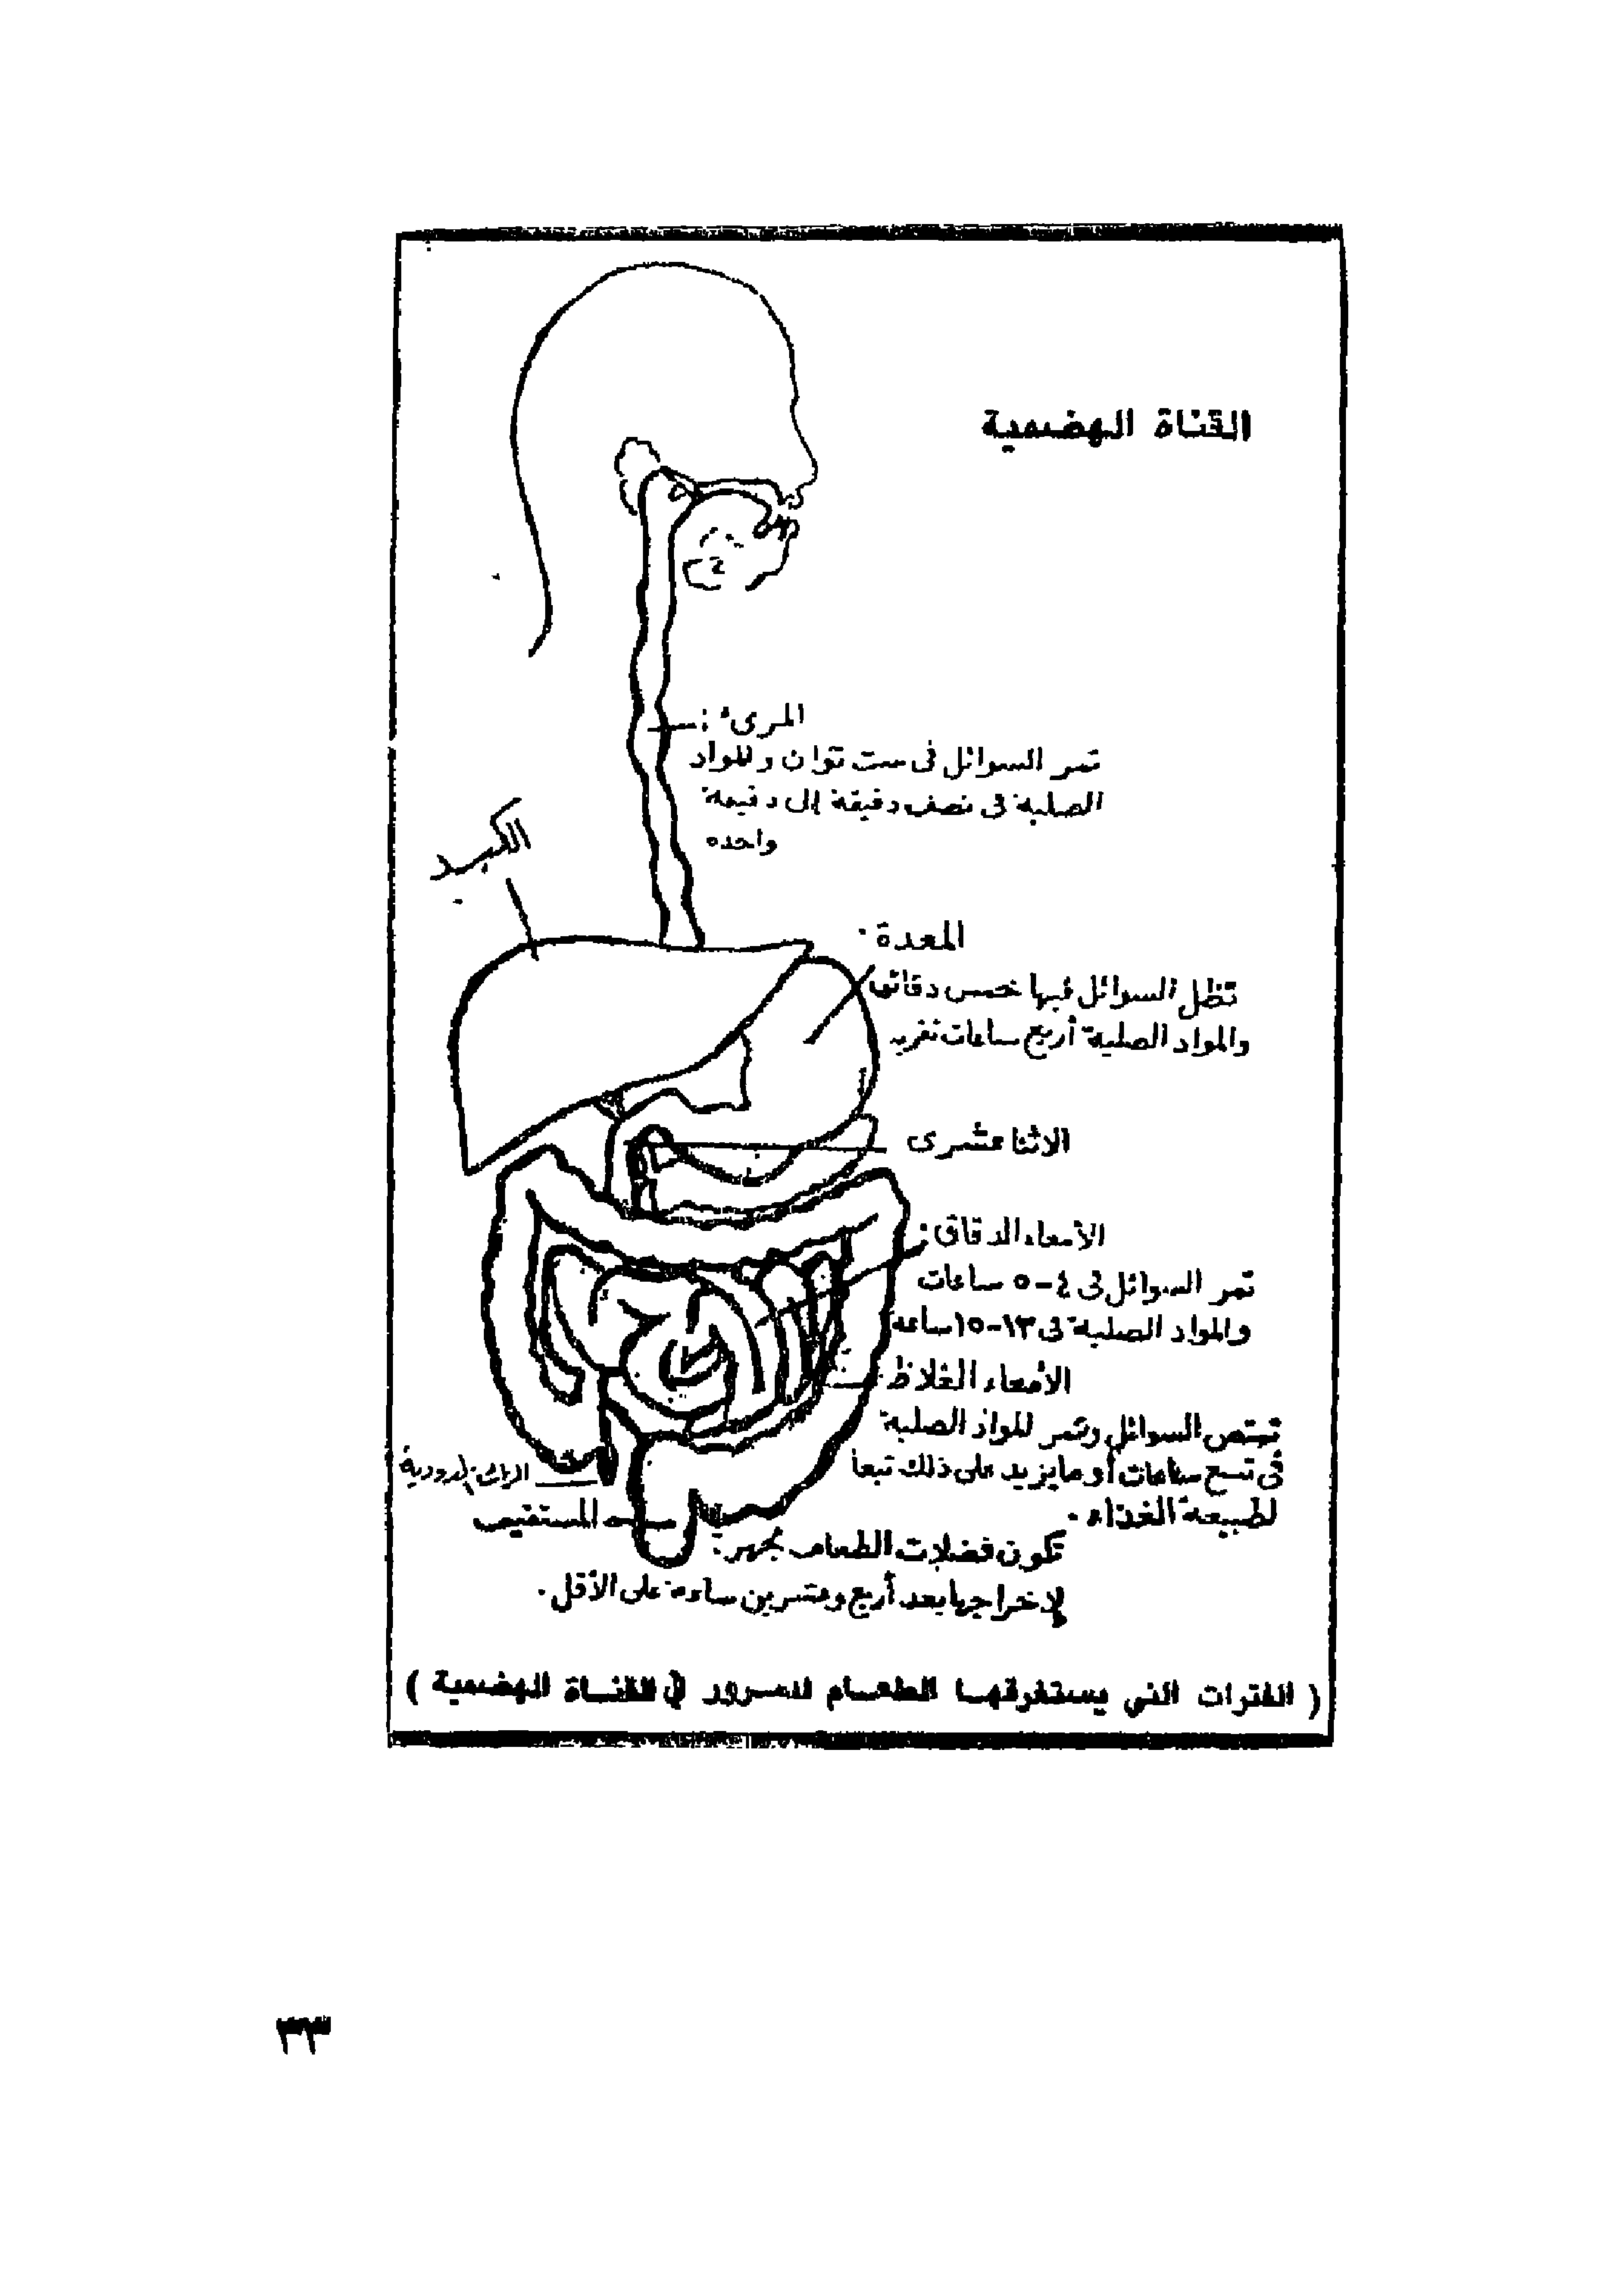 القناة الهضمية
المرىء :
تمر السوائل فى ست ثوان والمواد
الصلبة فى نصف دقيقة إلى دقيقة
واحده
الكبد
المعدة .
تظل السوائل فيها خمس دقائق
والمواد الصلبة أربع ساعات تقريبا
الاثنا عشرى
الأمعاء الدقاق :
تمر السوائل فى ٤-٥ ساعات
والمواد الصلبة فى ١٣-١٥ ساعة
الأمعاء الغلاظ
تمتص السوائل وتمر المواد الصلبة
فى تسع ساعات أو ما يزيد على ذلك تبعا
لطبيعة الغذاء .
الزائدة الدودية
المستقيم
تكون فضلات الطعام مجهزة
لإخراجها بعد أربع وعشرين ساعة على الأقل .
( الفترات التي يستغرقها الطعام للمرور في القناة الهضمية )
٣٣